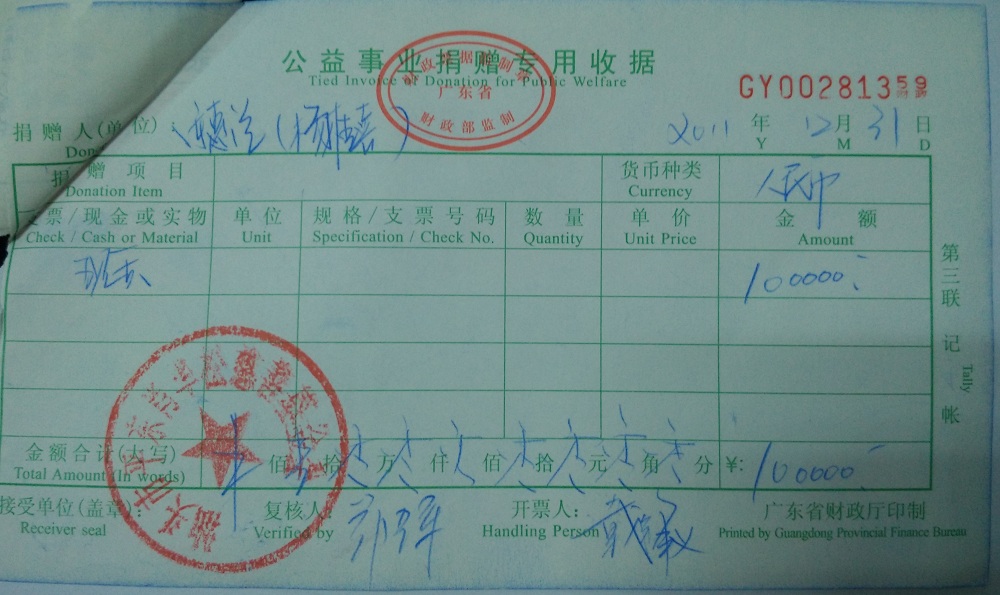 公益事业捐赠专用收据
Tied Invoice of Donation for Public Welfare
广东省
财政部监制
GY00281359
捐赠人(单位):
2011 年 12 月 31 日
Y M D
捐赠项目 货币种类 人民币
Donation Item Currency
支票/现金或实物 单位 规格/支票号码 数量 单价 金额
Check / Cash or Material Unit Specification / Check No. Quantity Unit Price Amount
现金 100000
第三联 记帐
Tally
金额合计(大写) 佰 拾 万 仟 佰 拾 元 角 分 ¥: 100000
Total Amount (In words)
接受单位(盖章): 复核人: 开票人: 广东省财政厅印制
Receiver seal Verified by Handling Person Printed by Guangdong Provincial Finance Bureau